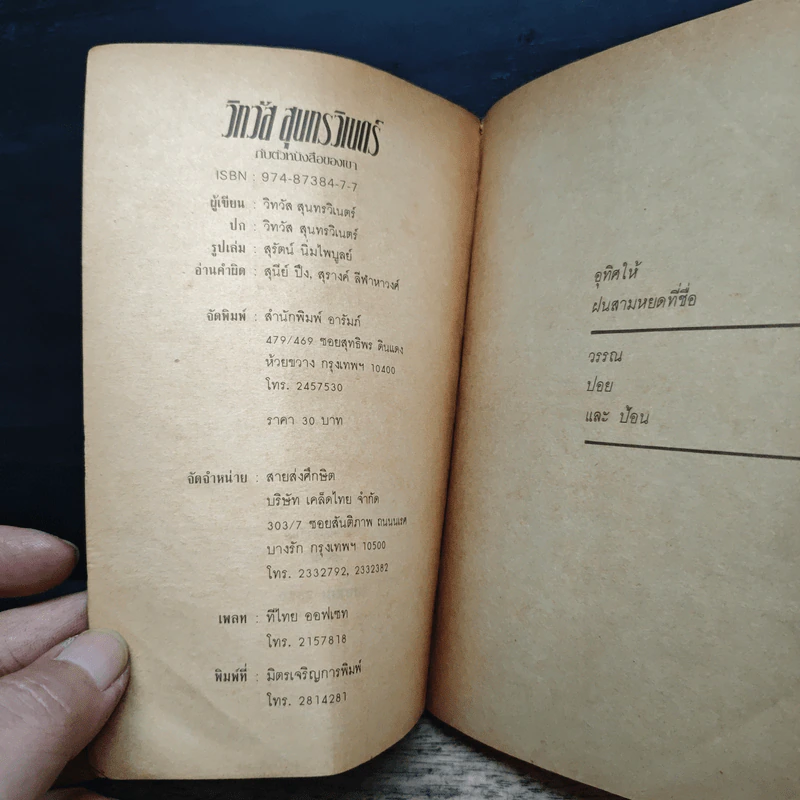 วิทวัส สุนทรวิเนตร์
กับตัวหนังสือของเขา
ISBN : 974-87384-7-7
ผู้เขียน : วิทวัส สุนทรวิเนตร์
ปก : วิทวัส สุนทรวิเนตร์
รูปเล่ม : สุรัตน์ นิ่มไพบูลย์
อ่านคำผิด : สุนีย์ ปึง, สุรางค์ ลีฬาหาวงศ์
จัดพิมพ์ : สำนักพิมพ์ อารัมภ์
479/469 ซอยสุทธิพร ดินแดง
ห้วยขวาง กรุงเทพฯ 10400
โทร. 2457530
ราคา 30 บาท
จัดจำหน่าย : สายส่งศึกษิต
บริษัท เคล็ดไทย จำกัด
303/7 ซอยสันติภาพ ถนนนเรศ
บางรัก กรุงเทพฯ 10500
โทร. 2332792, 2332382
เพลท : ทีไทย ออฟเซท
โทร. 2157818
พิมพ์ที่ : มิตรเจริญการพิมพ์
โทร. 2814281
อุทิศให้
ฝนสามหยดที่ชื่อ
วรรณ
ปอย
และ ป้อน